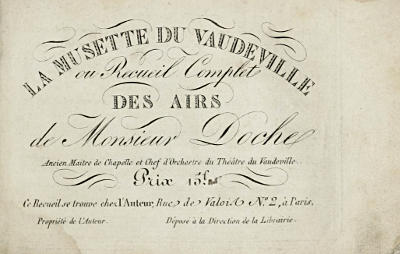 LA MUSETTE DU VAUDEVILLE
ou Recueil Complet
DES AIRS
de Monsieur Doche
Ancien Maître de Chapelle et Chef d'Orchestre du Théâtre du Vaudeville.
Prix 15.f
Ce Recueil se trouve chez l'Auteur, Rue de Valois Nº. 2, à Paris.
Propriété de l'Auteur.
Déposé à la Direction de la Librairie.